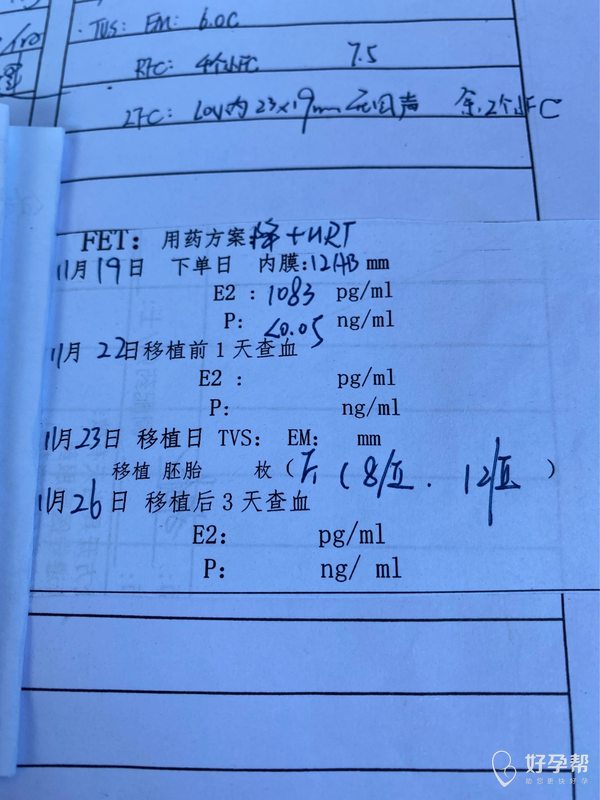 TVS: EM: 6.0C
RFC: 4个小FC 7.5
LFC: LOV内 23×19mm 无回声 余.2个小FC
FET: 用药方案 降+HRT
11月19日 下单日 内膜:12AB mm
E2 : 1083 pg/ml
P: <0.05 ng/ml
11月 22日移植前1天查血
E2 : pg/ml
P: ng/ml
11月23日 移植日 TVS: EM: mm
移植 胚胎 枚 ( (8/Ⅱ. 12/Ⅱ )
11月26日 移植后3天查血
E2: pg/ml
P: ng/ ml
好孕帮
助您更快好孕